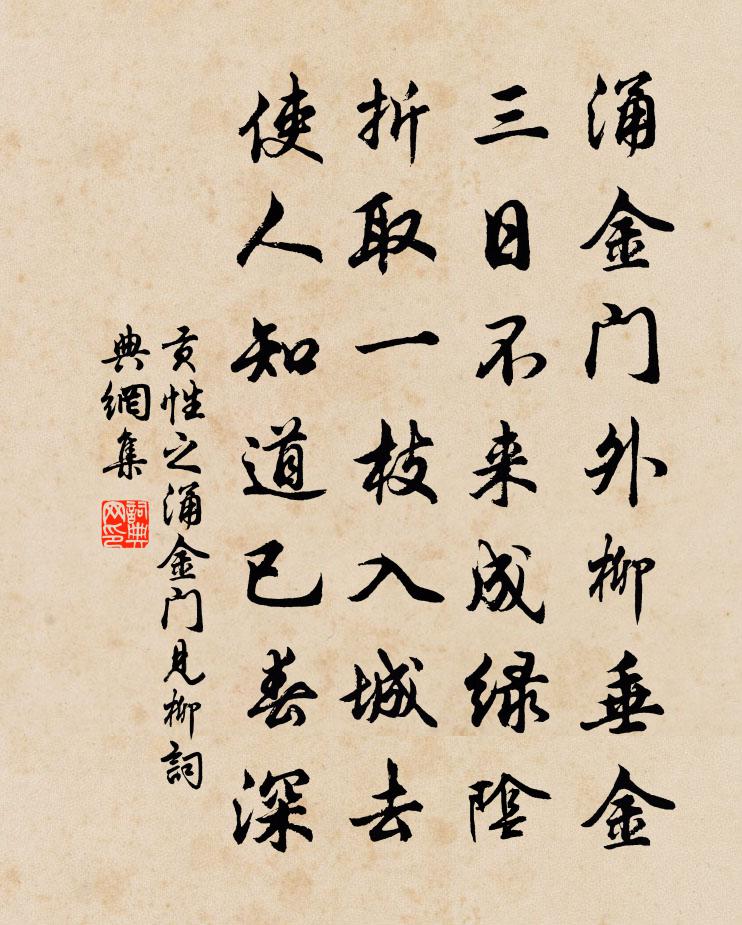 涌金门外柳垂金
三日不来成绿陰
折取一枝入城去
使人知道已春深
贡性之涌金门见柳詞
典網集
詞典网印